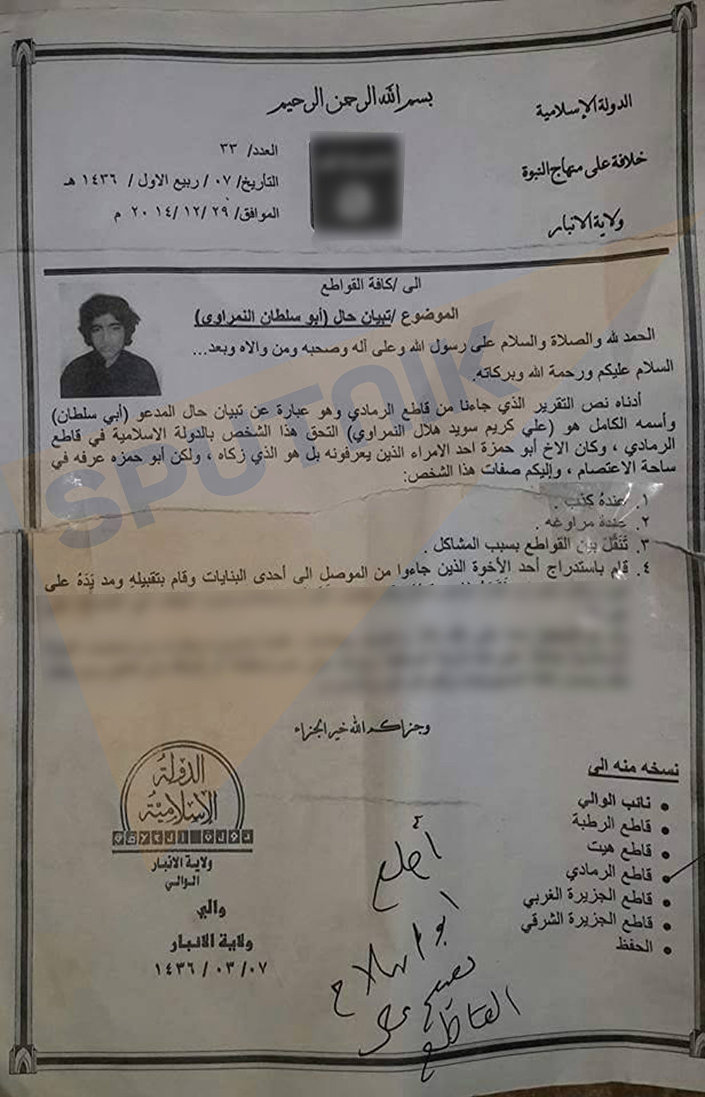 بسم الله الرحمن الرحيم
الدولة الإسلامية
خلافة على منهاج النبوة
ولاية الانبار
العدد/ ٣٣
التأريخ/ ٠٧ / ربيع الاول / ١٤٣٦ هـ
الموافق/ ٢٩ /١٢ /٢٠١٤ م
الى /كافة القواطع
الموضوع /تبيان حال (أبو سلطان النمراوي)
الحمد لله والصلاة والسلام على رسول الله وعلى أله وصحبه ومن والاه وبعد...
السلام عليكم ورحمة الله وبركاته.
أدناه نص التقرير الذي جاءنا من قاطع الرمادي وهو عبارة عن تبيان حال المدعو (أبي سلطان)
وأسمه الكامل هو (علي كريم سويد هلال النمراوي) التحق هذا الشخص بالدولة الاسلامية في قاطع
الرمادي ، وكان الاخ أبو حمزة احد الامراء الذين يعرفونه بل هو الذي زكاه ، ولكن أبو حمزه عرفه في
ساحة الاعتصام ، وإليكم صفات هذا الشخص:
١. عندهُ كذب .
٢. عندهُ مراوغه .
٣. تَنَقَّلَ بين القواطع بسبب المشاكل .
٤. قام باستدراج أحد الأخوة الذين جاءوا من الموصل الى أحدى البنايات وقام بتقبيلهِ ومد يَدَهُ على
وجزاكم الله خير الجزاء
SPUTNIK
الدولة
الإسلامية
ولاية الانبار
الوالي
والي
ولاية الانبار
٠٧/ ٠٣ / ١٤٣٦
نسخه منه الى
• نائب الوالي
• قاطع الرطبة
• قاطع هيت
• قاطع الرمادي
• قاطع الجزيرة الغربي
• قاطع الجزيرة الشرقي
• الحفظ
القاطع